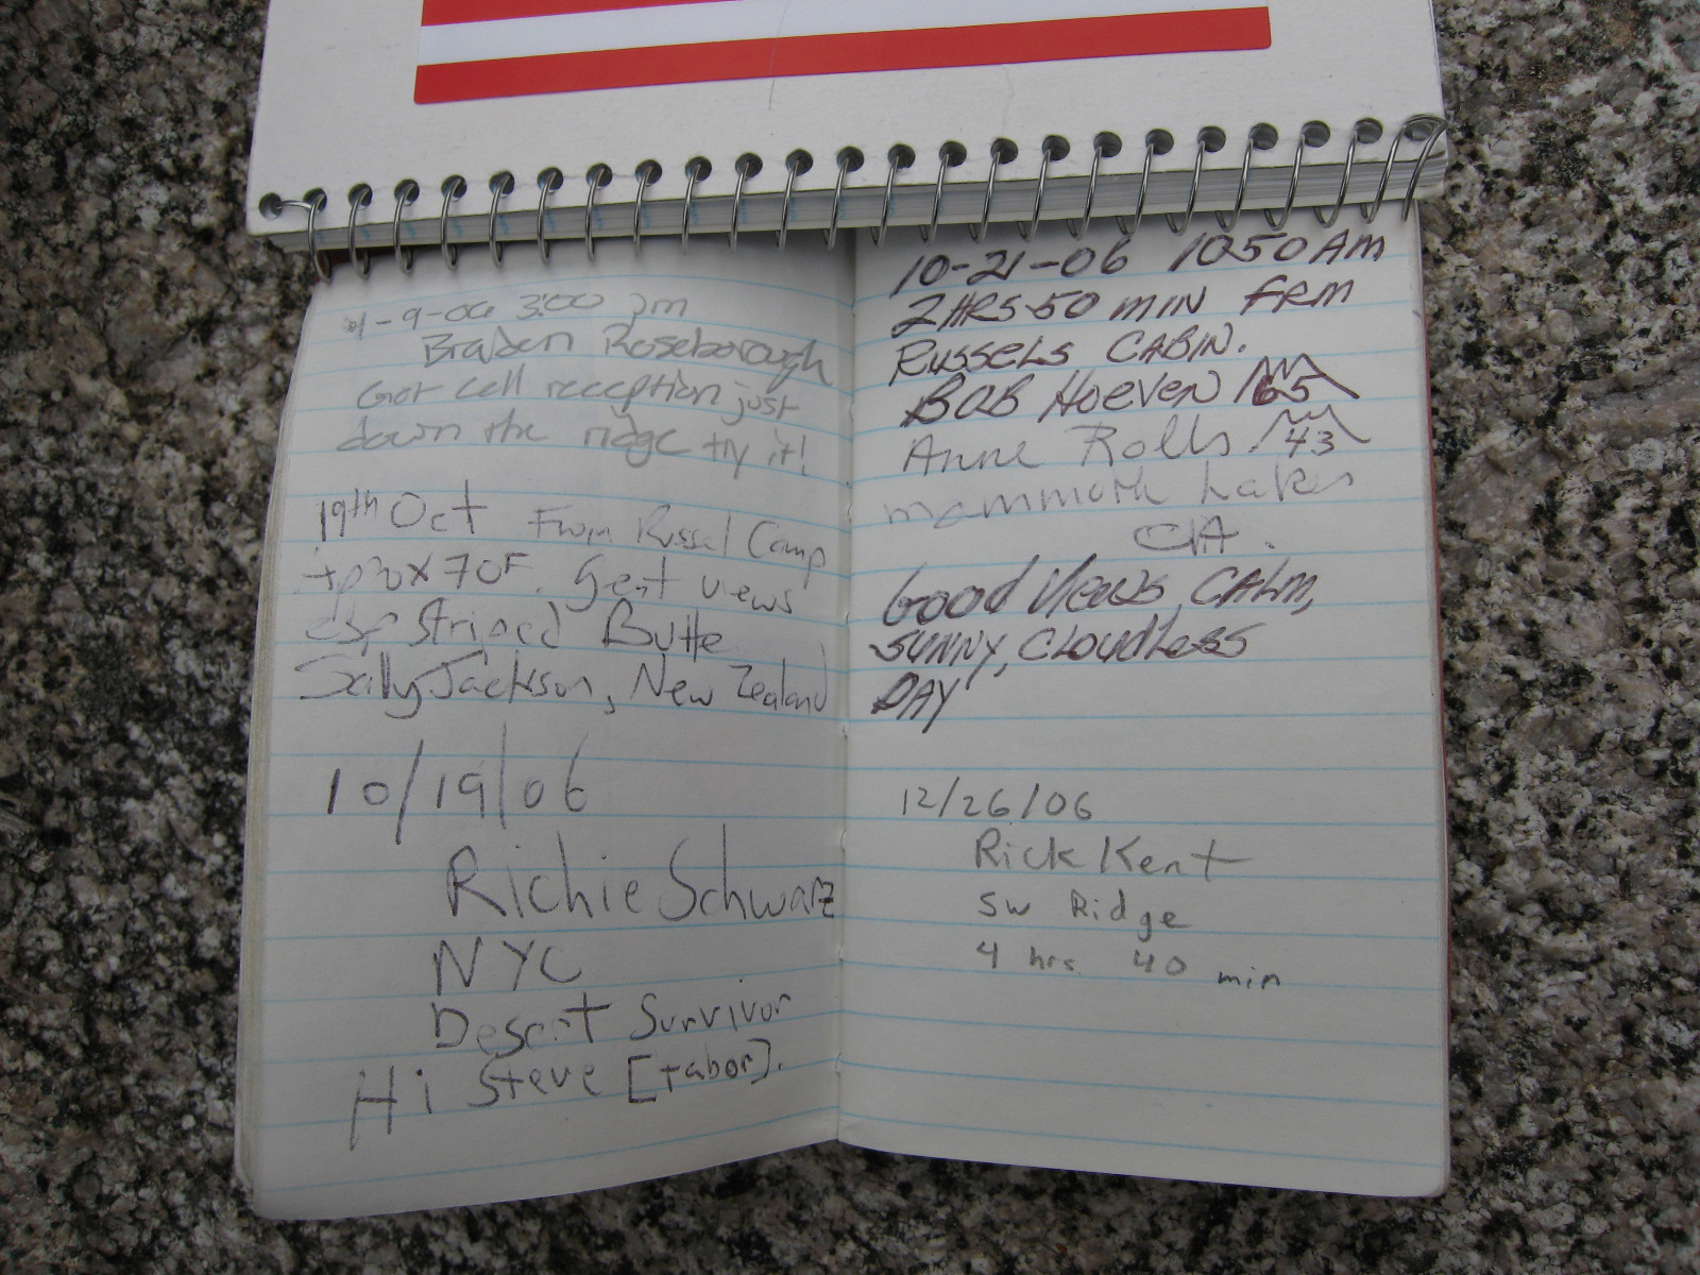 -9-06 3:00 pm
Braden Roseborough
Got cell reception just
down the ridge try it!
19th Oct From Russel Camp
70F. Gert views
esp Striped Butte
Sally Jackson, New Zealand
10/19/06
Richie Schwarz
NYC
Desert Survivor
Hi Steve [Tabor].
10-21-06 1050 AM
2 HRS 50 MIN FRM
RUSSELS CABIN.
BOB HOEVEN 65
Anne Rolls 43
mammoth Lakes
CA.
Good Views, CALM,
SUNNY, CLOUDLESS
DAY
12/26/06
Rick Kent
SW Ridge
4 hrs 40 min